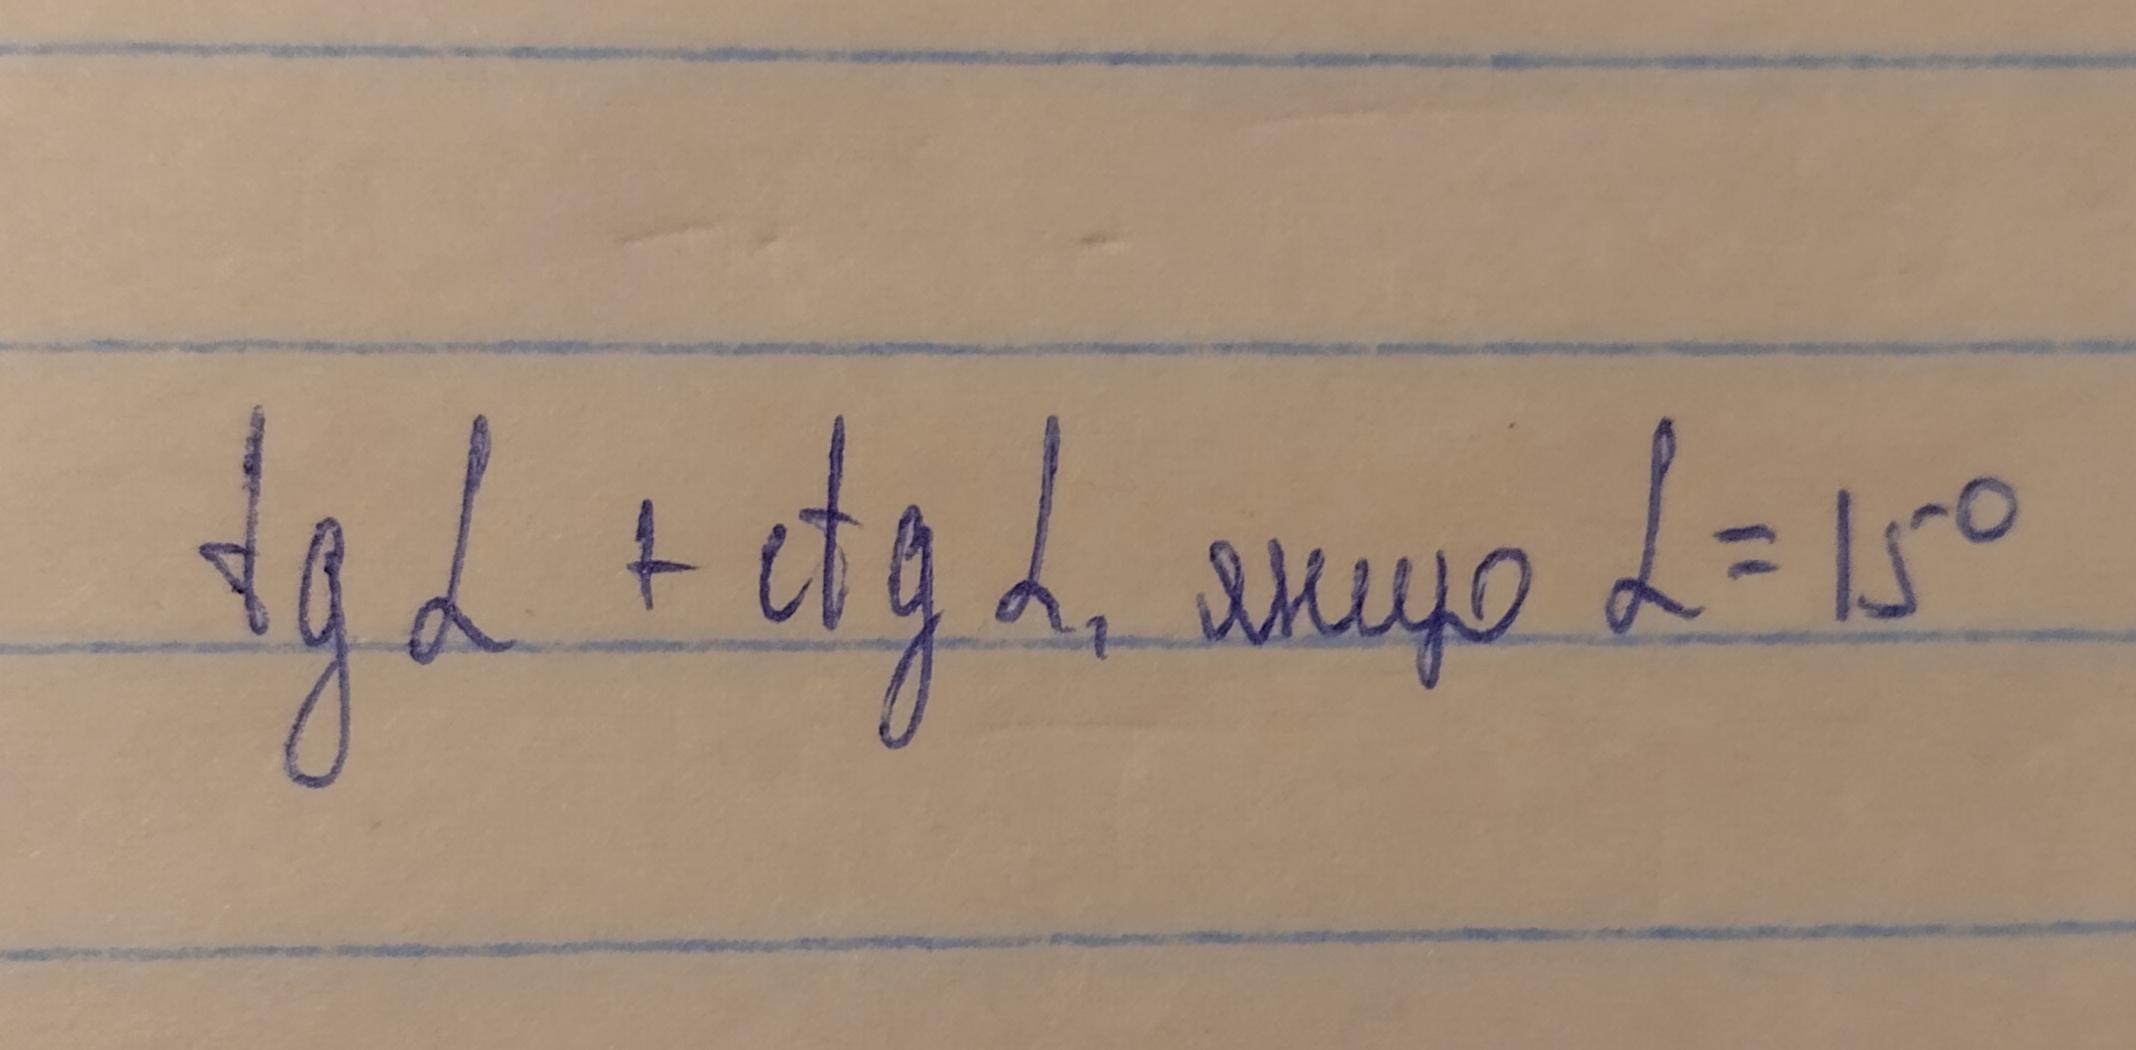 tg α + ctg α, якщо α = 15°